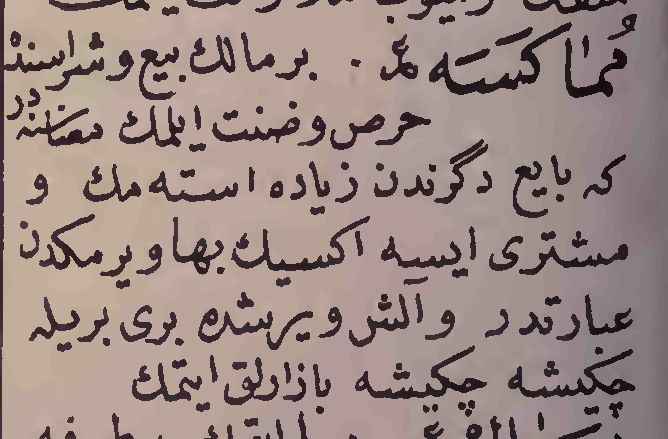 مُماكَسَه عر. بر مالك بیع و شراسنده
حرص و ضنت ایلمك معناسنه در
كه بایع دگرندن زیاده استه مك و
مشتری ایسه اكسیك بها ویرمكدن
عبارتدر و آلش ویرشده بری بریله
چكیشه چكیشه بازارلق ایتمك